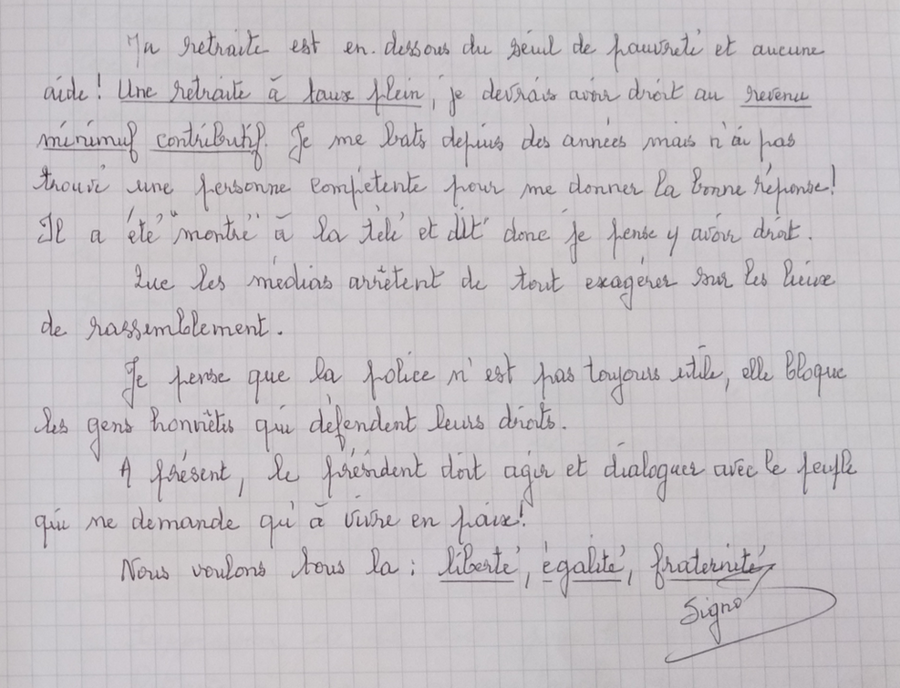 Ma retraite est en dessous du seuil de pauvreté et aucune
aide ! Une retraite à taux plein, je devrais avoir droit au revenu
minimuf contributif. Je me bats depuis des années mais n'ai pas
trouvé une personne compétente pour me donner la bonne réponse !
Il a été "montré" à la télé et dit donc je pense y avoir droit.
Que les médias arrêtent de tout exagérer sur les lieux
de rassemblement.
Je pense que la police n'est pas toujours utile, elle bloque
les gens honnêtes qui défendent leurs droits.
A présent, le président doit agir et dialoguer avec le peuple
qui ne demande qu'à vivre en paix !
Nous voulons tous la : liberté, égalité, fraternité
Signé